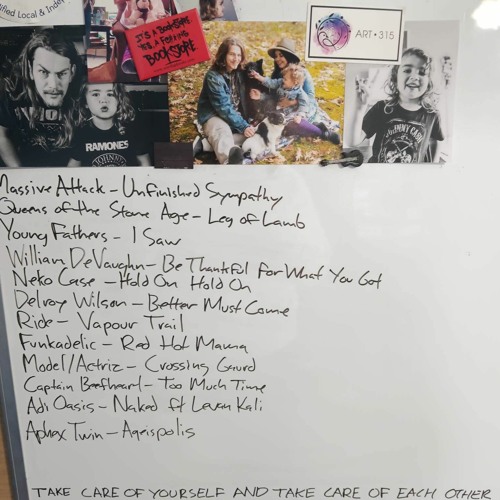 ified Local & Indep
IT'S A BOOKSTORE
IT'S A F
BOOKSTORE
ART • 315
RAMONES
JOHNNY
Massive Attack – Unfinished Sympathy
Queens of the Stone Age – Leg of Lamb
Young Fathers – I Saw
William DeVaughn – Be Thankful For What You Got
Neko Case – Hold On Hold On
Delroy Wilson – Better Must Come
Ride – Vapour Trail
Funkadelic – Red Hot Mama
Model/Actriz – Crossing Gaurd
Captain Beefheart – Too Much Time
Adi Oasis – Naked ft Leven Kali
Aphex Twin – Ageispolis
TAKE CARE OF YOURSELF AND TAKE CARE OF EACH OTHER